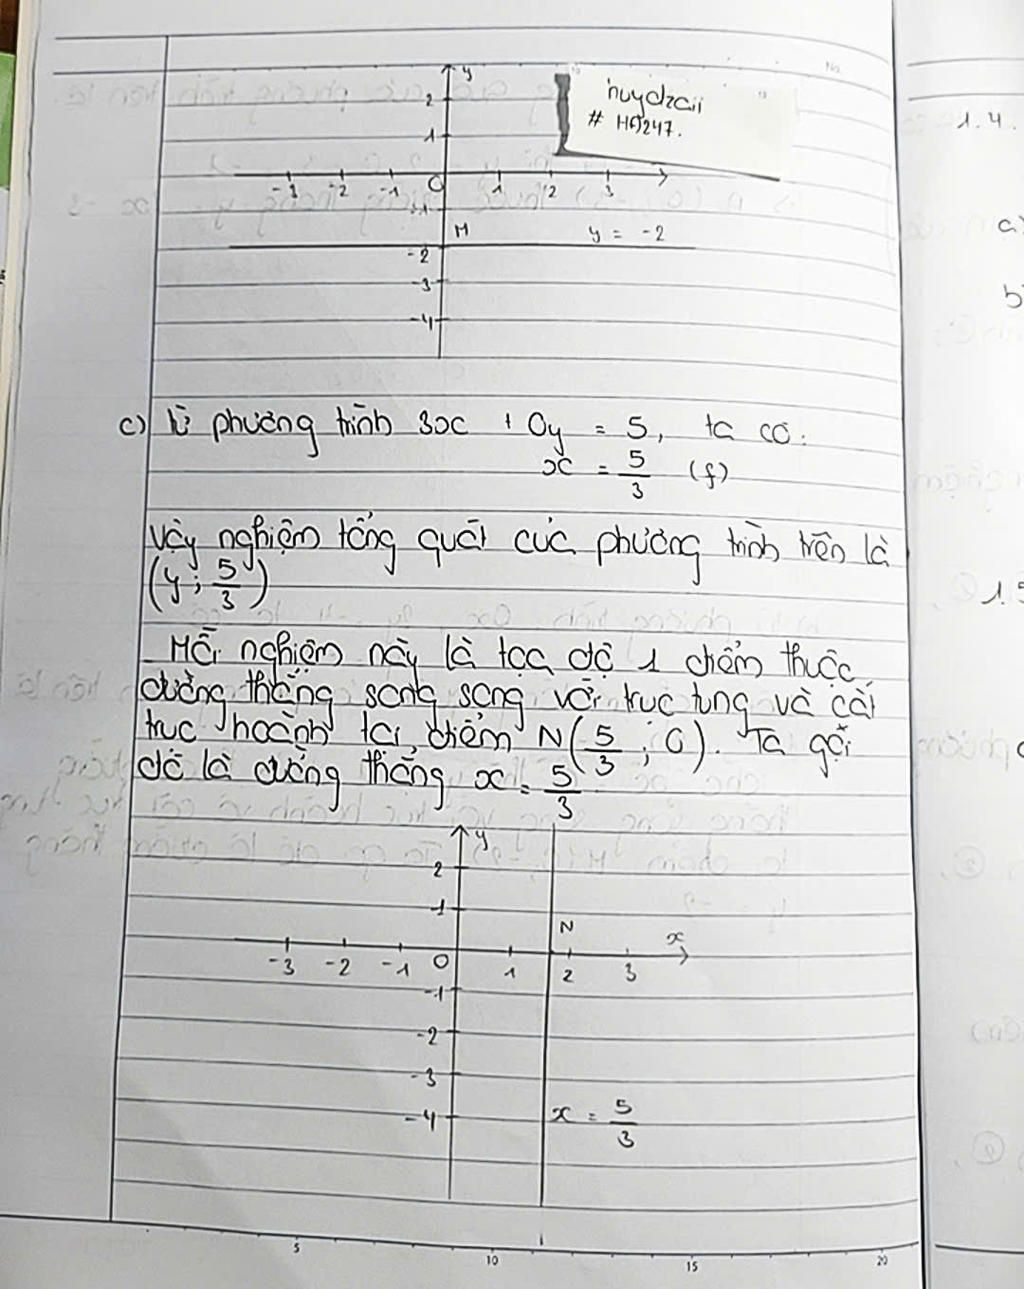 y
huydzaii
# HA247.
2
1
-3 -2 -1 O 1 2 3
-1
M y = -2
-2
-3
-4
1.4.
a)
b)
c) Từ phương trình 3x + 0y = 5, ta có:
x = 5/3 (f)
Vậy nghiệm tổng quát của phương trình trên là
(y; 5/3)
Mỗi nghiệm này là tọa độ 1 điểm thuộc
đường thẳng song song với trục tung và cắt
trục hoành tại điểm N(5/3; 0). Ta gọi
đó là đường thẳng x = 5/3
y
2
1
N x
-3 -2 -1 O 1 2 3
-1
-2
-3
-4 x = 5/3
5 10 15 20